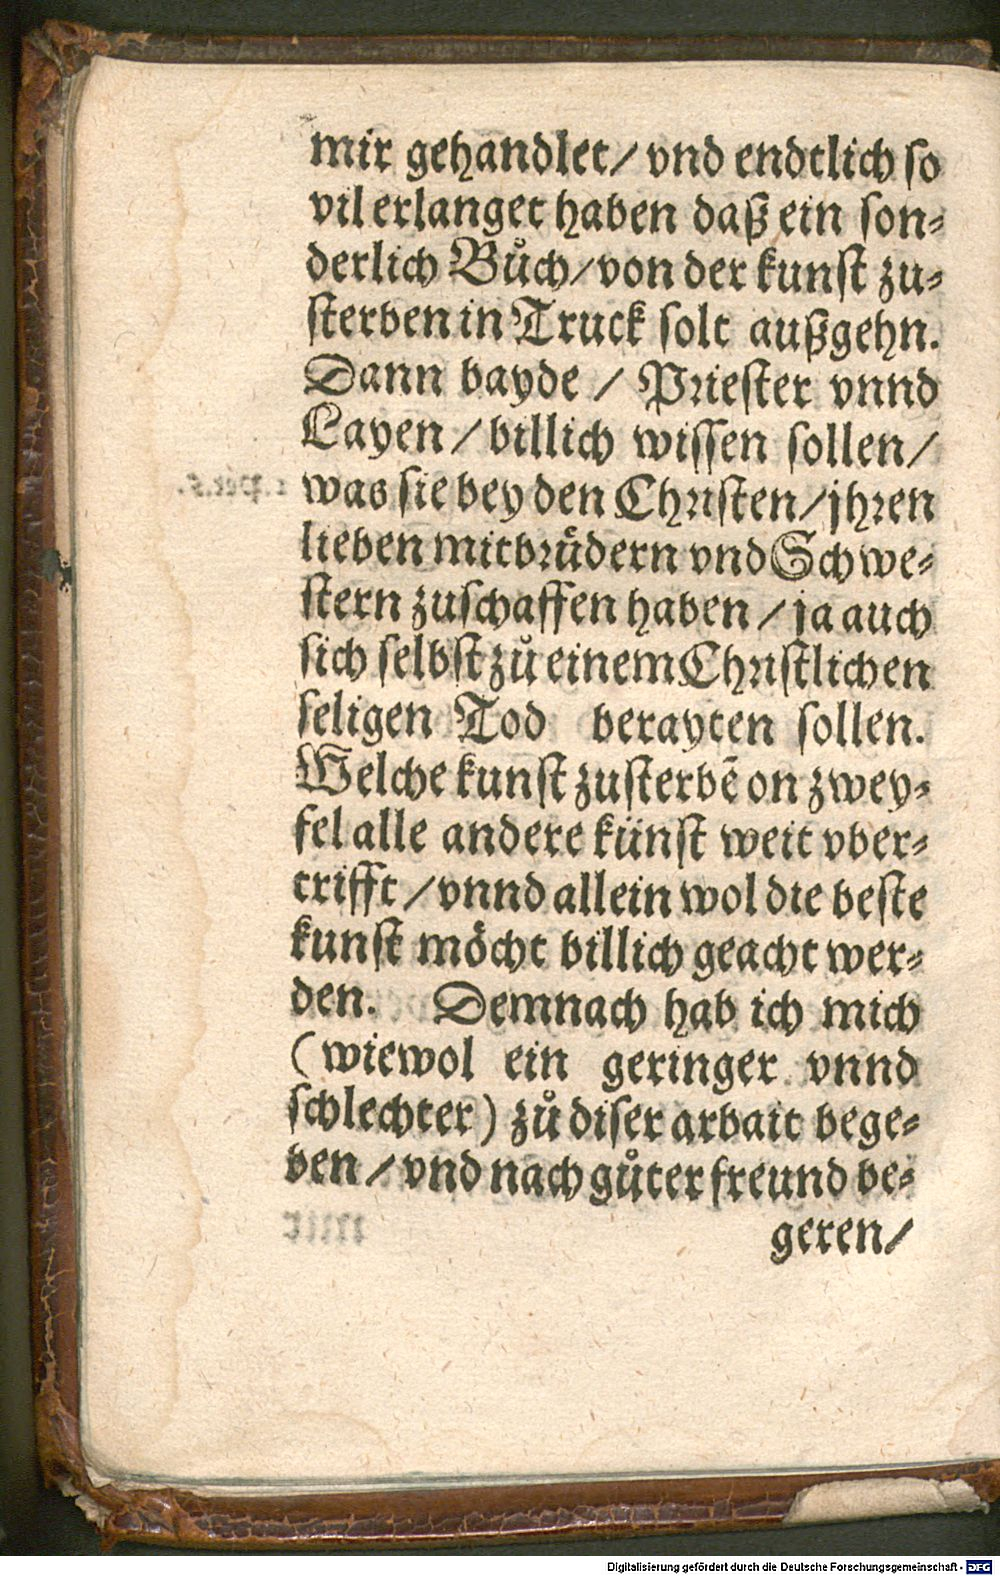 mir gehandlet/ vnd endtlich so
vil erlanget haben daß ein son-
derlich Bůch/ von der kunst zu-
sterben in Truck solt außgehn.
Dann bayde / Priester vnnd
Layen / billich wissen sollen/
was sie bey den Christen/ jhren
lieben mitbrüdern vnd Schwe-
stern zuschaffen haben / ja auch
sich selbst zů einem Christlichen
seligen Tod berayten sollen.
Welche kunst zusterbē on zwey-
fel alle andere künst weit vber-
trifft / vnnd allein wol die beste
kunst möcht billich geacht wer-
den. Demnach hab ich mich
(wiewol ein geringer vnnd
schlechter) zů diser arbait bege-
ben / vnd nach gůter freund be-
geren/
Digitalisierung gefördert durch die Deutsche Forschungsgemeinschaft - DFG